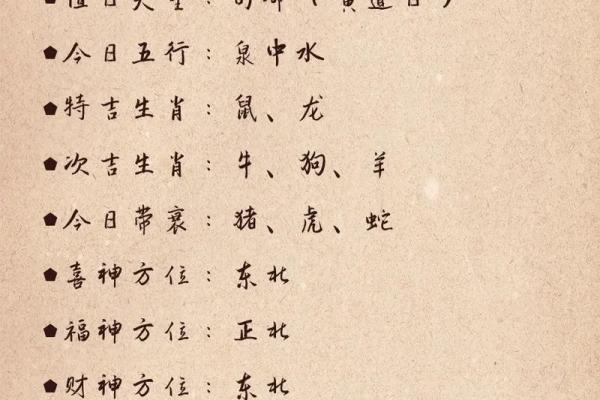 今日五行：泉中水
特吉生肖：鼠、龙
次吉生肖：牛、狗、羊
今日带衰：猪、虎、蛇
喜神方位：东北
福神方位：正北
财神方位：东北